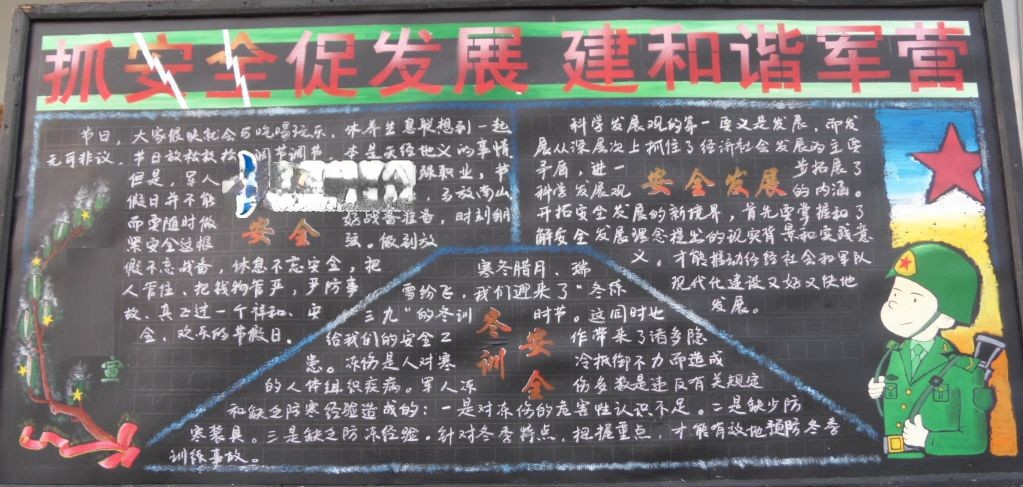 抓安全促发展 建和谐军营
节日，大家很快就会与吃喝玩乐、休养生息联想到一起
无可非议，节日放松放松，调节调节，本是天经地义的事情
但是，军人 殊职业，节
假日并不能 南山
而要随时做 好战备准备，时刻绷
安全
紧安全这根 弦。做到放
假不忘战备，休息不忘安全，把
人管住、把钱物管严，严防事
故、真正过一个祥和、安
全、欢乐的节假日。
宣
科学发展观的第一要义是发展，而发
展从深层次上抓住了经济社会发展的主要
矛盾，进一 步拓展了
安全发展
科学发展观 的内涵。
开拓安全发展的新境界，首先要掌握和了
解安全发展理念提出的现实背景和实践意
义。才能推动经社会和军队
现代化建设又好又快地
发展。
寒冬腊月、瑞
雪纷飞，我们迎来了“冬练
三九”的冬训 时节。这同时也
冬训安全
给我们的安全工 作带来了诸多隐
患。冻伤是人对寒 冷抵御不力而造成
的人体组织疾病。军人冻 伤多数是违反有关规定
和缺乏防寒经验造成的：一是对冻伤的危害性认识不足。二是缺少防
寒装具。三是缺乏防冻经验。针对冬季特点，把握重点，才能有效地预防冬季
训练事故。